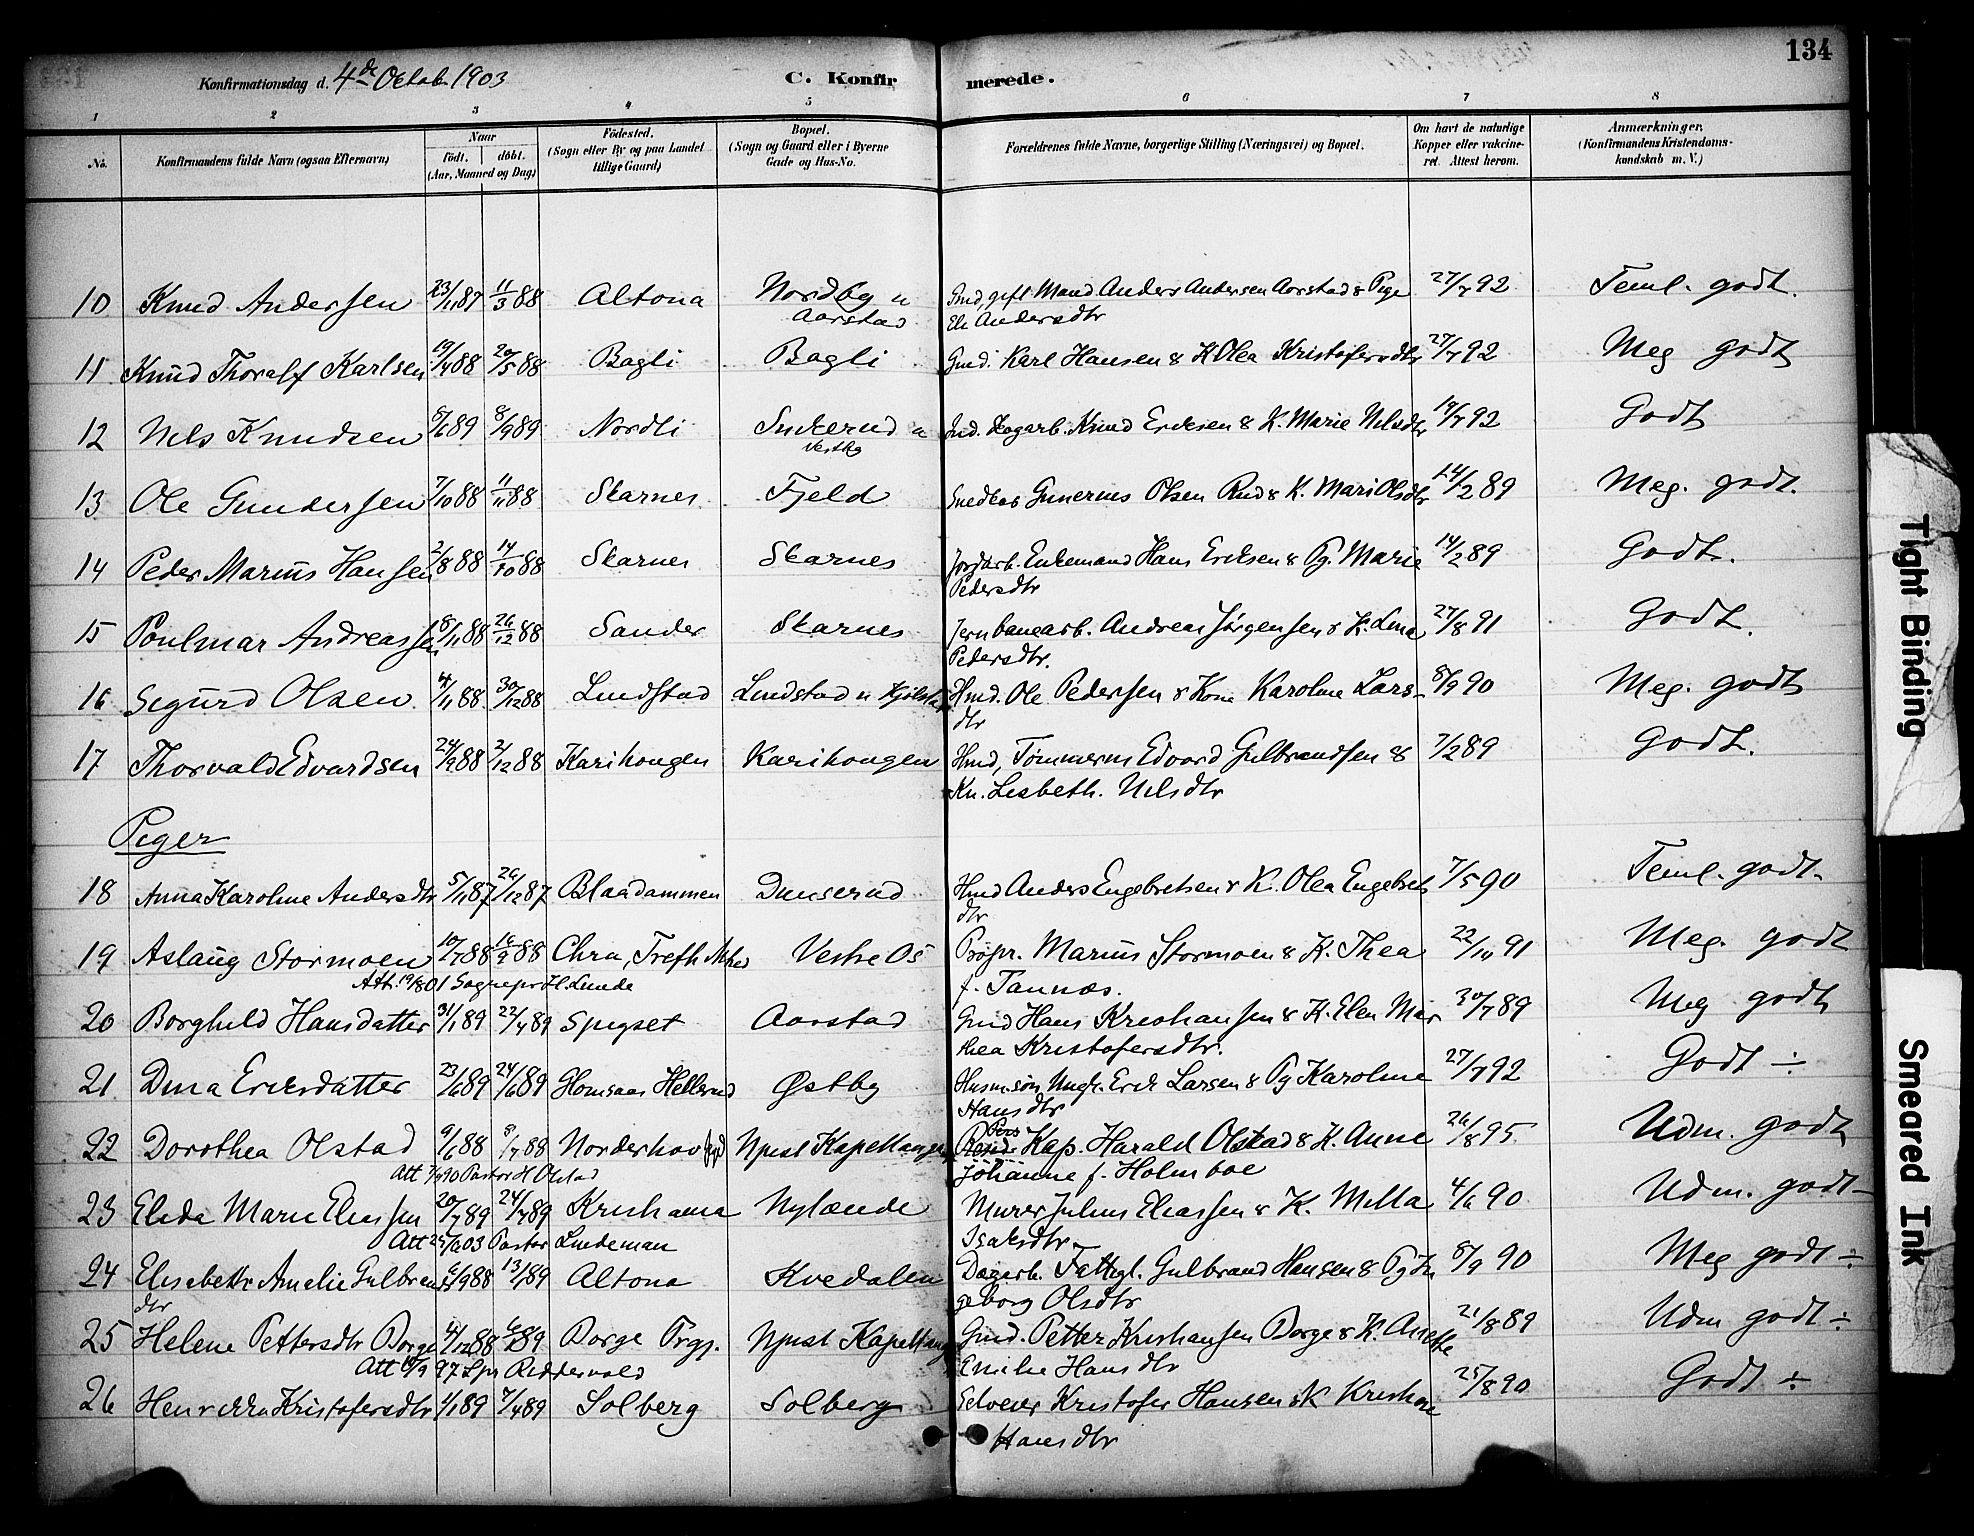 134
Konfirmationsdag d. 4de Octob. 1903 C. Konfirmerede.
1 2 3 4 5 6 7 8
No. Konfirmandens fulde Navn (ogsaa Efternavn) Naar født. døbt. (Aar, Maaned og Dag) Fødested. (Sogn eller By og paa Landet tillige Gaard) Bopæl. (Sogn og Gaard eller i Byerne Gade og Hus-No. Forældrenes fulde Navne, borgerlige Stilling (Næringsvei) og Bopæl. Om havt de naturlige Kopper eller vakcineret. Attest herom. Anmærkninger. (Konfirmandens Kristendomskundskab m. V.)
10 Knud Andersen 23/11 87 11/3 88 Altona Nordby u Aarstad Gmd, gift Mand Anders Andersen Aarstad & Pige 27/7 92 Teml. godt.
Eli Andersdtr
11 Knud Thoralf Karlsen 19/4 88 20/5 88 Bagli Bagli Gmd. Karl Hansen & K Olea Kristofersdtr 27/7 92 Meg godt
12 Nils Knudsen 8/6 89 8/9 89 Nordli Sukerud u Vestby Ind. Skogarb. Knud Eriksen & K. Marie Nilsdtr 19/7 92 Godt
13 Ole Gundersen 7/10 88 11/11 88 Skarnes Fjeld Gunerius Olsen Rud & K. Mari Olsdtr 14/2 89 Meg. godt.
14 Peder Marius Hansen 2/8 88 14/10 88 Skarnes Skarnes Jordarb. Enkemand Hans Eriksen & Pg. Marie 14/2 89 Godt.
Pedersdtr
15 Poulmar Andreassen 8/11 88 26/12 88 Sander Skarnes Jernbanearb. Andreas Jørgensen & K. Lina 27/8 91 Godt.
Pedersdtr.
16 Sigurd Olsen 4/11 88 30/12 88 Lundstad Lundstad u Hmd. Ole Pedersen & Kone Karoline Lars- 8/9 90 Meg. godt
dtr
17 Thorvald Edvardsen 24/9 88 2/12 88 Karihaugen Karihaugen Hmd, Tømmerm Edvard Gulbrandsen & 7/2 89 Godt.
Kn. Lisbeth. Nilsdtr
Piger
18 Anna Karoline Andersdtr 5/11 87 26/12 87 Blaadammen Dunserud Hmd Anders Engebretsen & K. Olea Engebrets 7/5 90 Teml. godt.
dtr
19 Aslaug Stormoen 10/7 88 16/9 88 Chra, Trefh Mhed Vestre Os Prøpr. Marius Stormoen & K. Thea 22/10 91 Meg. godt
Att. 19/8 01 Sognepr H. Lunde f. Tannæs.
20 Borghild Hansdatter 31/1 89 22/4 89 Spigset Aarstad Gmd Hans Kristiansen & K. Elen Mar 30/7 89 Meg godt
thea Kristofersdtr.
21 Dina Eriksdatter 23/6 89 24/6 89 Homsaas Hellerud Østby Husmsøn Ungk. Erik Larsen & Pg Karoline 27/7 92 Godt ÷
Hansdtr
22 Dorothea Olstad 9/6 88 8/7 88 Norderhov Ullern Kapellangaard Pers. Kap. Harald Olstad & K. Anne 26/8 95 Udm. godt
Att 7/9 90 Pastor H Olstad Johanne f. Holmboe
23 Elida Marie Eliassen 20/7 89 24/7 89 Kristiania Nylænde Murer Julius Eliassen & K. Milla 4/6 90 Udm. godt
Att 25/9 03 Pastor Lindeman Isaksdtr
24 Elisabeth Amelie Gulbrands 6/9 88 13/1 89 Altona Kvedalen Dagarb. Fattigl. Gulbrand Hansen & Pg In 8/9 90 Meg godt ÷
dtr geborg Olsdtr
25 Helene Pettersdtr Borge 4/12 88 6/2 89 Borge Prgj. Kapellang Gmd. Petter Kristiansen Borge & K. Anette 21/8 89 Udm godt ÷
Att 19/9 97 Spr Riddervold Emilie Hansdtr
26 Henrikka Kristofersdtr 1/1 89 7/4 89 Solberg Solberg Selveier Kristofer Hansen & K Kristiane 25/8 90 Godt ÷
Hansdtr
Tight Binding
Smeared Ink